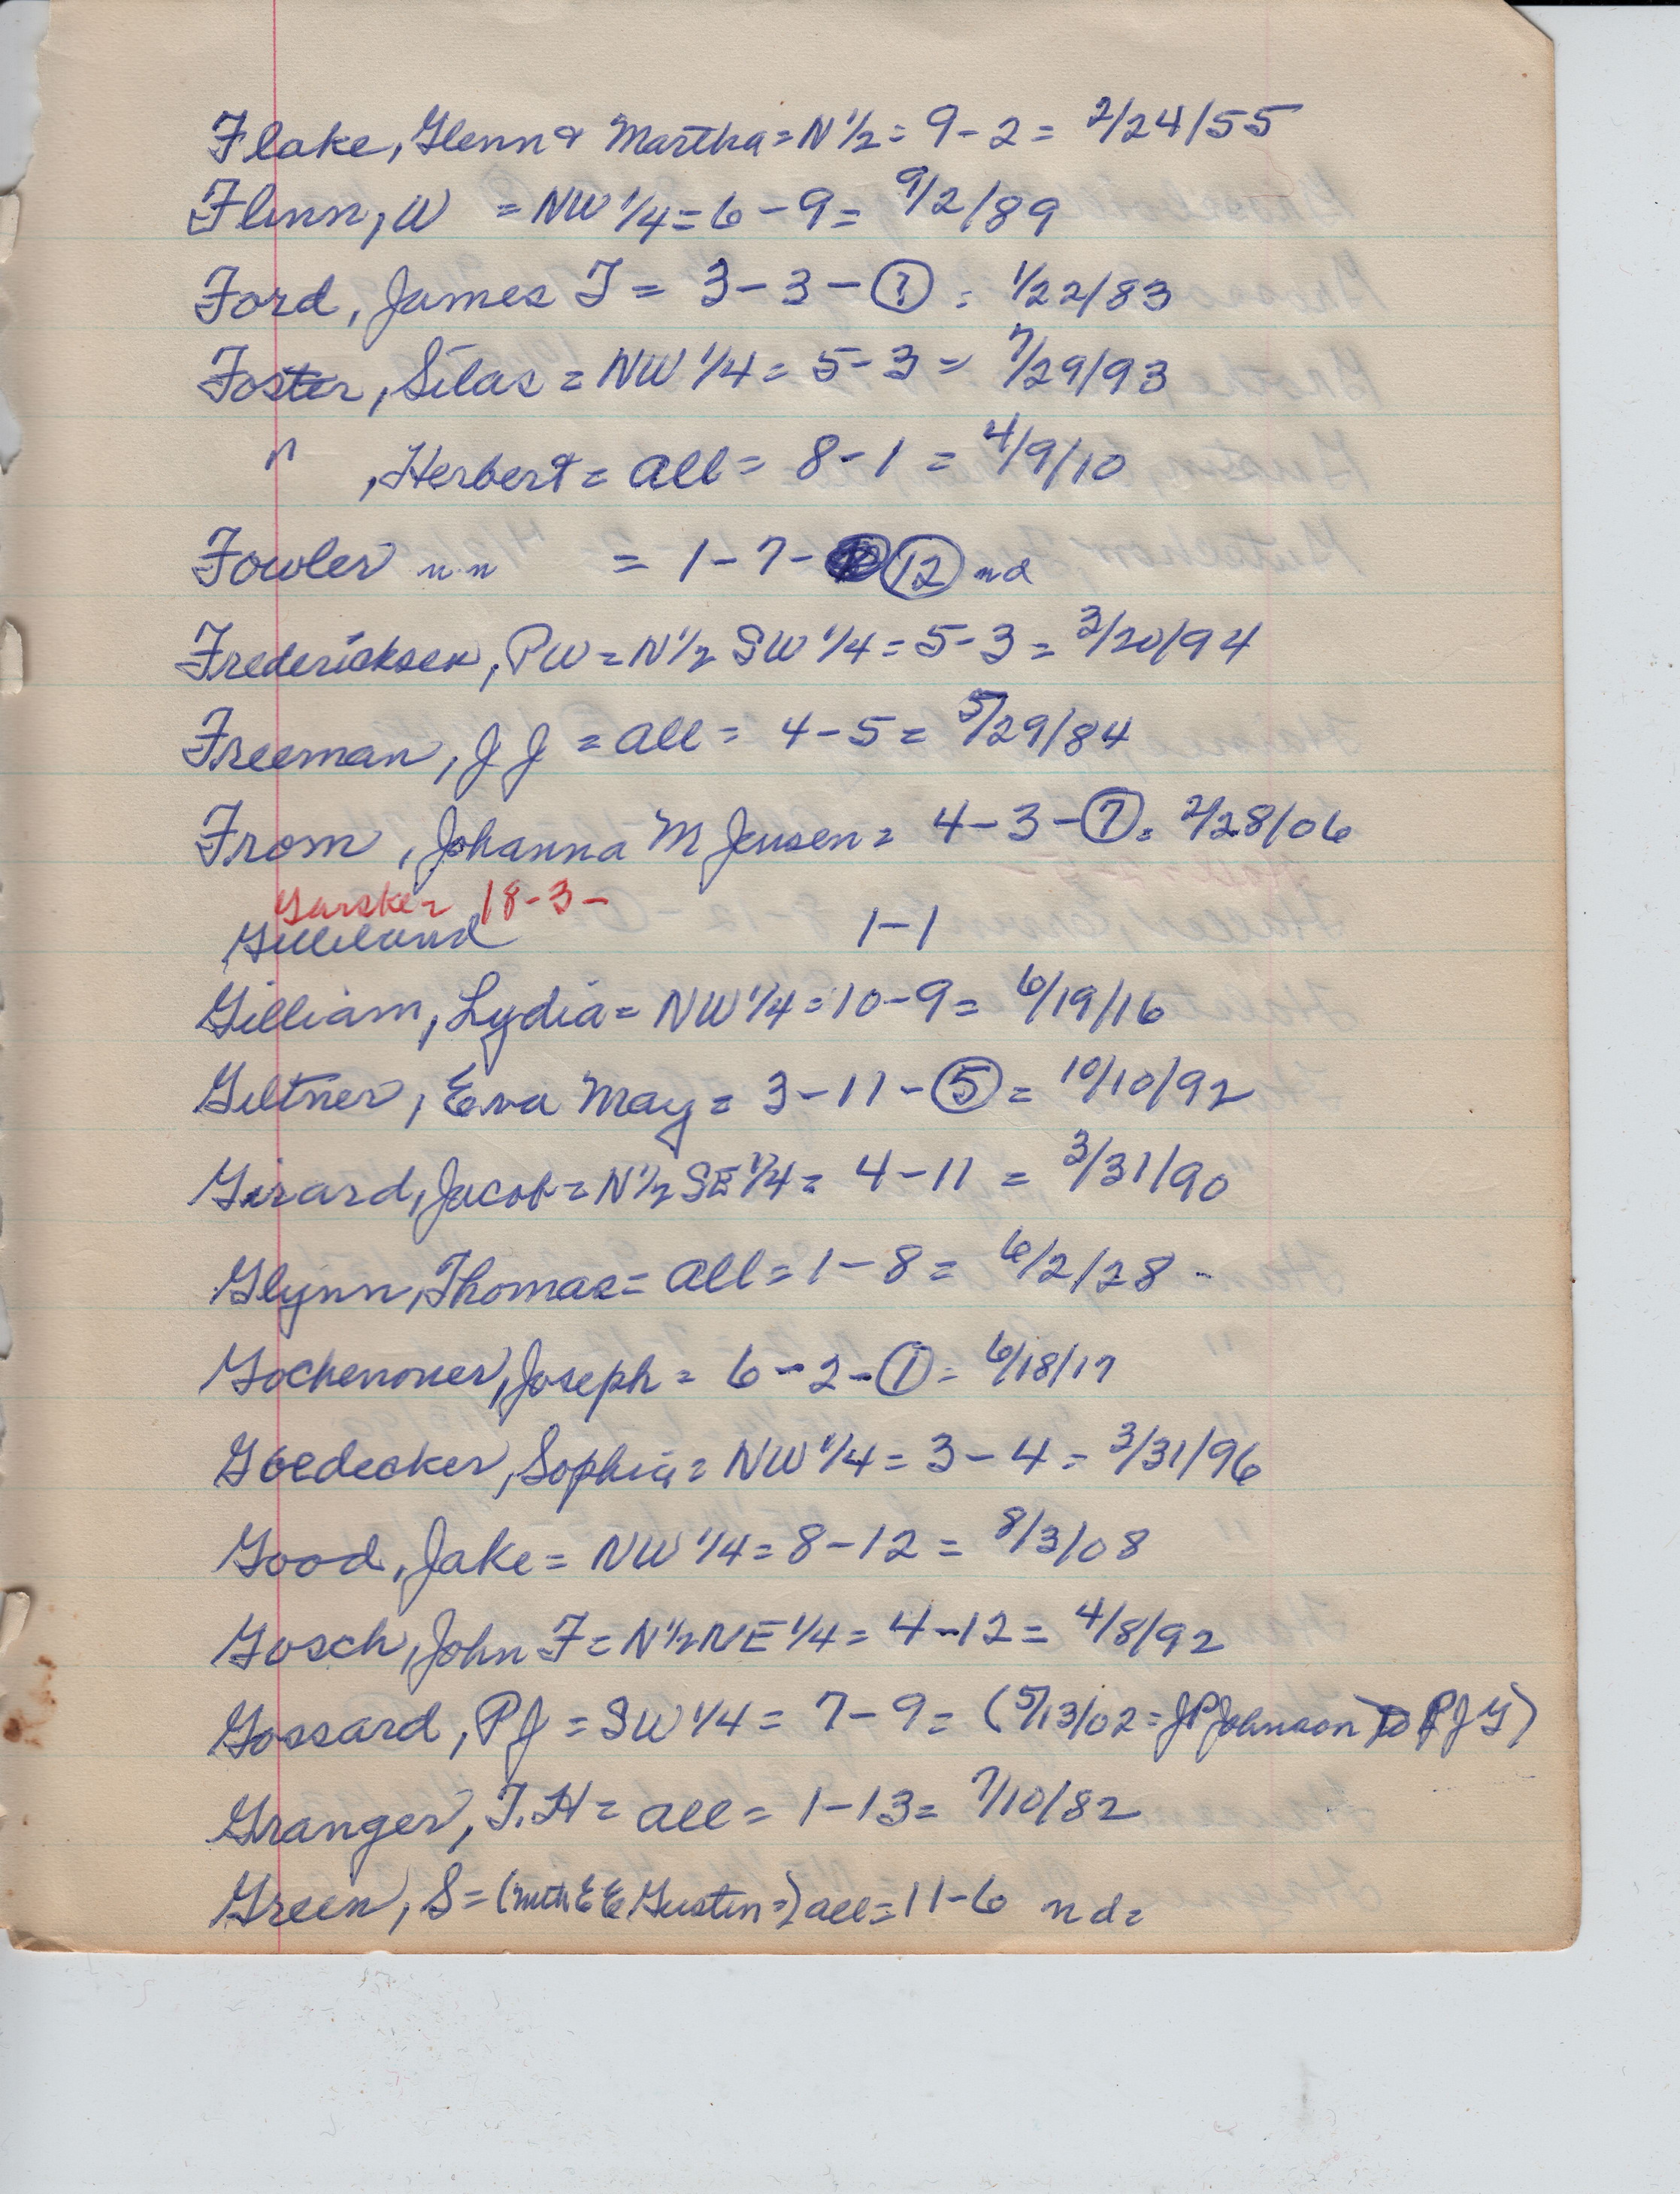 Flake, Glenn & Martha = N 1/2 = 9 - 2 = 2/24/55
Flinn, W = NW 1/4 = 6 - 9 = 9/2/89
Ford, James T = 3 - 3 - ? = 1/22/83
Foster, Silas = NW 1/4 = 5 - 3 = 7/29/93
" , Herbert = all = 8 - 1 = 4/9/10
Fowler n n = 1 - 7 - 12 nd
Fredericksen, PW = N 1/2 SW 1/4 = 5 - 3 = 3/20/94
Freeman, J J = all = 4 - 5 = 5/29/84
From, Johanna M Jensen = 4 - 3 - 7 = 2/28/06
Garske = 18 - 3 -
Gilliland 1 - 1
Gilliam, Lydia = NW 1/4 = 10 - 9 = 6/19/16
Giltner, Eva May = 3 - 11 - 5 = 10/10/92
Girard, Jacob = N 1/2 SE 1/4 = 4 - 11 = 3/31/90
Glynn, Thomas = all = 1 - 8 = 6/2/28 -
Gochenouer, Joseph = 6 - 2 - 1 = 6/18/17
Goedecker, Sophia = NW 1/4 = 3 - 4 = 3/31/96
Good, Jake = NW 1/4 = 8 - 12 = 8/3/08
Gosch, John F = N 1/2 NE 1/4 = 4 - 12 = 4/8/92
Gossard, P J = SW 1/4 = 7 - 9 = (5/13/02 = J P Johnson to P J G)
Granger, T. H = all = 1 - 13 = 7/10/82
Green, S = (with E E Gustin =) all = 11 - 6 n d =